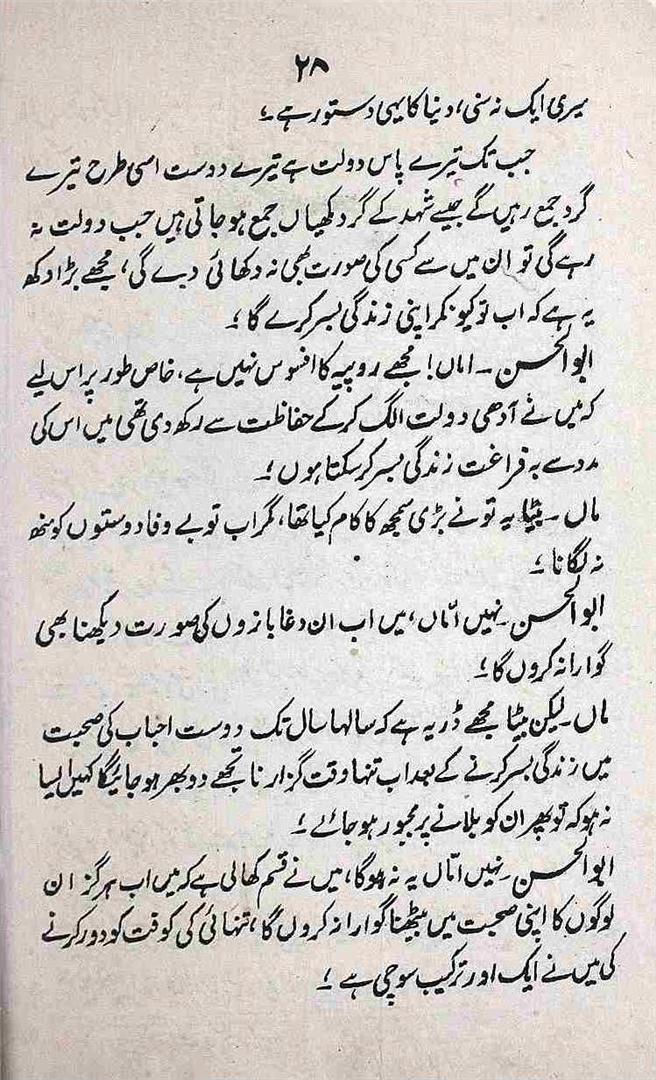 ۲۸
میری ایک نہ سنی، دنیا کا یہی دستور ہے ۔؛
جب تک تیرے پاس دولت ہے تیرے دوست اسی طرح تیرے
گرد جمع رہیں گے جیسے شہد کے گرد مکھیاں جمع ہو جاتی ہیں جب دولت نہ
رہے گی تو ان میں سے کسی کی صورت بھی نہ دکھائی دے گی، مجھے بڑا دکھ
یہ ہے کہ اب تو کیونکر اپنی زندگی بسر کرے گا ۔؛
ابوالحسن ۔ اماں! مجھے روپیہ کا افسوس نہیں ہے، خاص طور پر اس لیے
کہ میں نے آدھی دولت الگ کر کے حفاظت سے رکھ دی تھی میں اس کی
مدد سے بہ فراغت زندگی بسر کر سکتا ہوں ۔؛
ماں ۔ بیٹا یہ تو نے بڑی سمجھ کا کام کیا تھا، مگر اب تو بے وفا دوستوں کو منھ
نہ لگانا ۔؛
ابوالحسن ۔ نہیں امّاں، میں اب ان دغابازوں کی صورت دیکھنا بھی
گوارا نہ کروں گا ۔؛
ماں ۔ لیکن بیٹا مجھے ڈر یہ ہے کہ سالہا سال تک دوست احباب کی صحبت
میں زندگی بسر کرنے کے بعد اب تنہا وقت گزارنا تجھے دوبھر ہو جائیگا کہیں ایسا
نہ ہو کہ تو پھر ان کو بلانے پر مجبور ہو جائے ۔؛
ابوالحسن ۔ نہیں امّاں یہ نہ ہوگا، میں نے قسم کھالی ہے کہ میں اب ہرگز ان
لوگوں کا اپنی صحبت میں بیٹھنا گوارا نہ کروں گا، تنہائی کی کوفت کو دور کرنے
کی میں نے ایک اور ترکیب سوچی ہے ۔؛